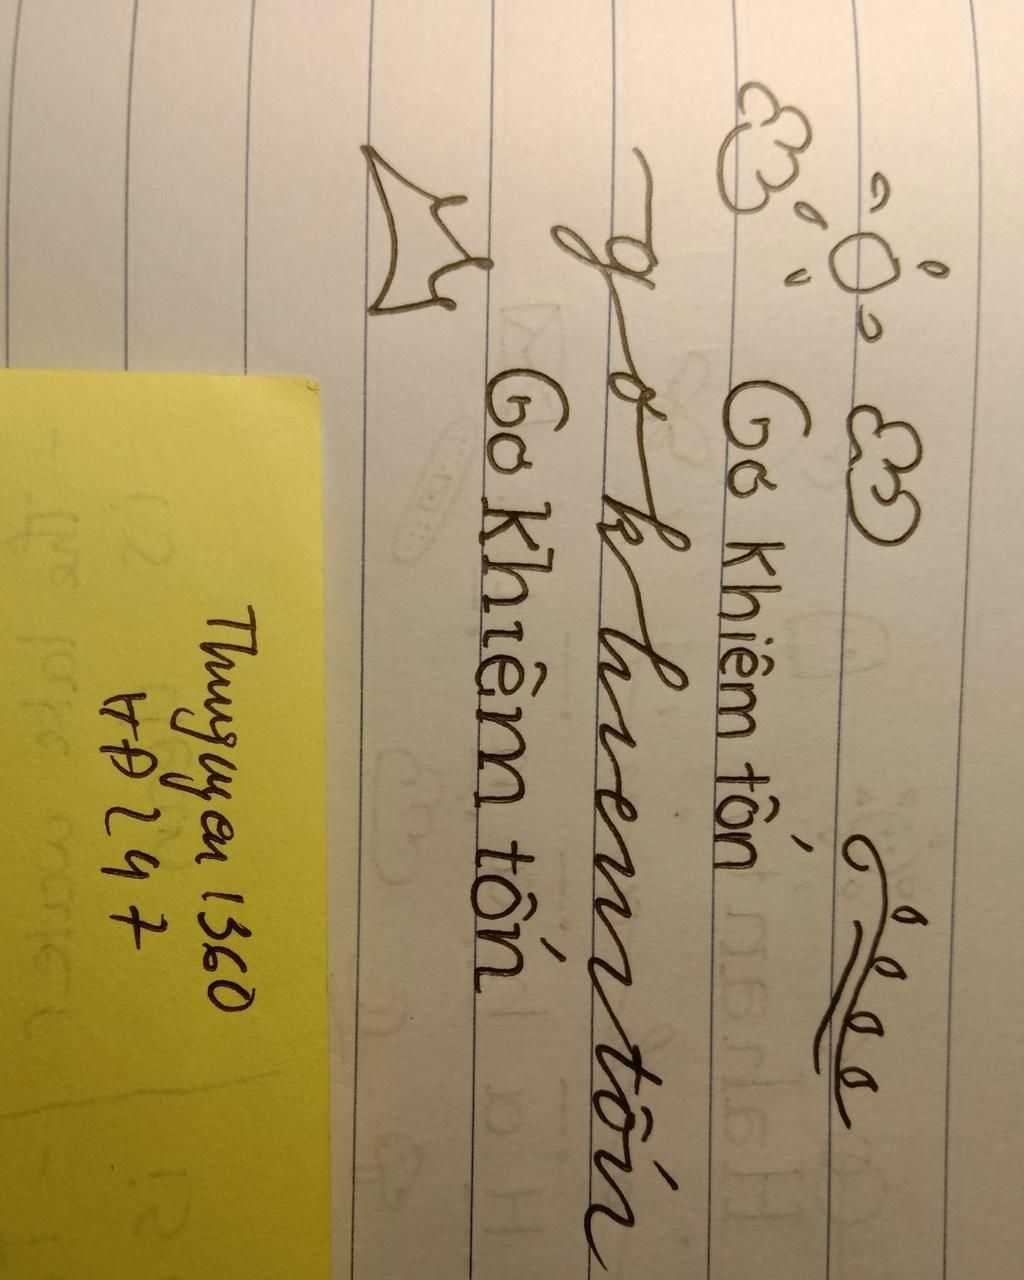 Gơ khiêm tốn
gơ khiem tốn
Gơ khiêm tốn
Thunguyen 1360
VĐ 247